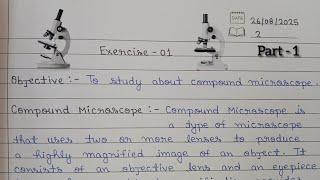 DATE 26/08/2025
2
Exercise - 01
Part - 1
Objective :- To study about compound microscope.
Compound Microscope :- Compound Microscope is
a type of microscope
that uses two or more lenses to produce
a highly magnified image of an object. It
consists of an objective lens and an eyepiece